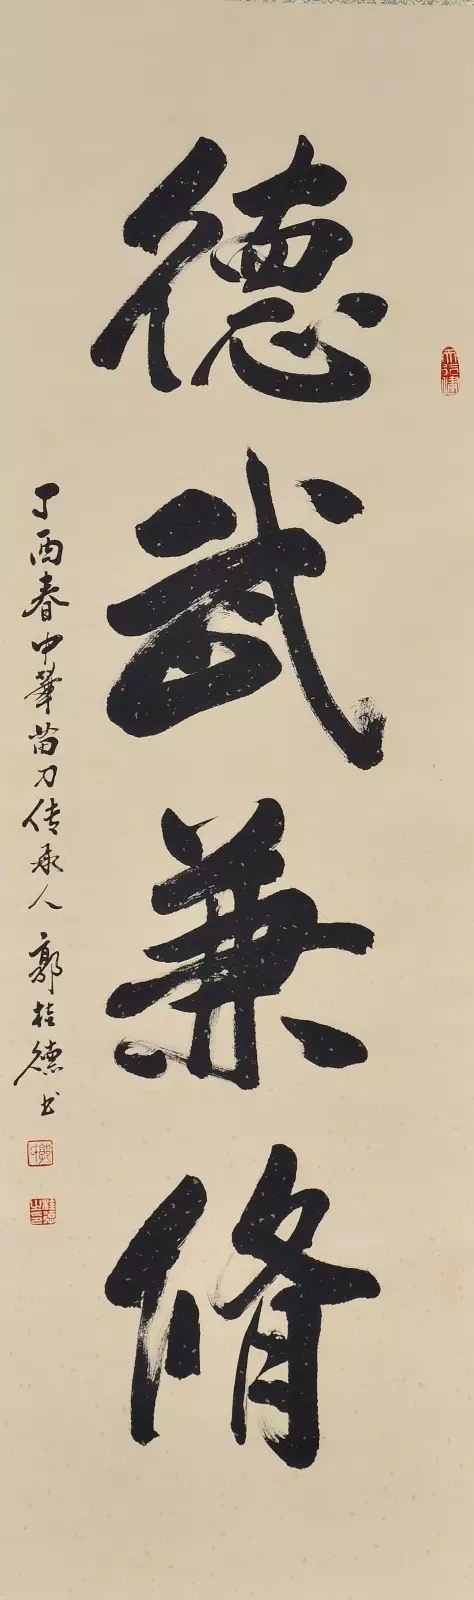 德武兼脩
丁酉春中華苗刀传承人郭桂德书
天行健